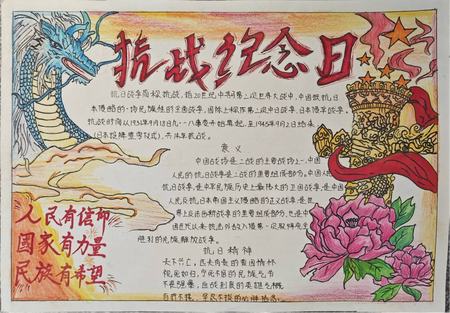 抗战纪念日
抗日战争简称抗战，指20世纪中期第二次世界大战中，中国抵抗日
本侵略的一场民族性的全面战争，国际上称作第二次中日战争、日本侵华战争。
抗战时间从1931年9月18日九·一八事变开始算起，至1945年9月2日结束
(日本投降签字仪式)，共14年抗战。
意义
中国战场是二战的主要战场之一，中国
人民的抗日战争是二战的重要组成部分。中国人民
抗日战争，是中华民族历史上最伟大的卫国战争，是中国
人民反抗日本帝国主义侵略的正义战争，是世
界上反法西斯战争的重要组成部分，也是中
国近代以来抗击外敌入侵第一次取得完全
胜利的民族解放战争。
抗日精神
天下兴亡，匹夫有责的爱国情怀
视死如归，宁死不屈的民族气节
不畏强暴，血战到底的英雄气概
百折不挠，坚忍不拔的必胜信念
人民有信仰
國家有力量
民族有希望